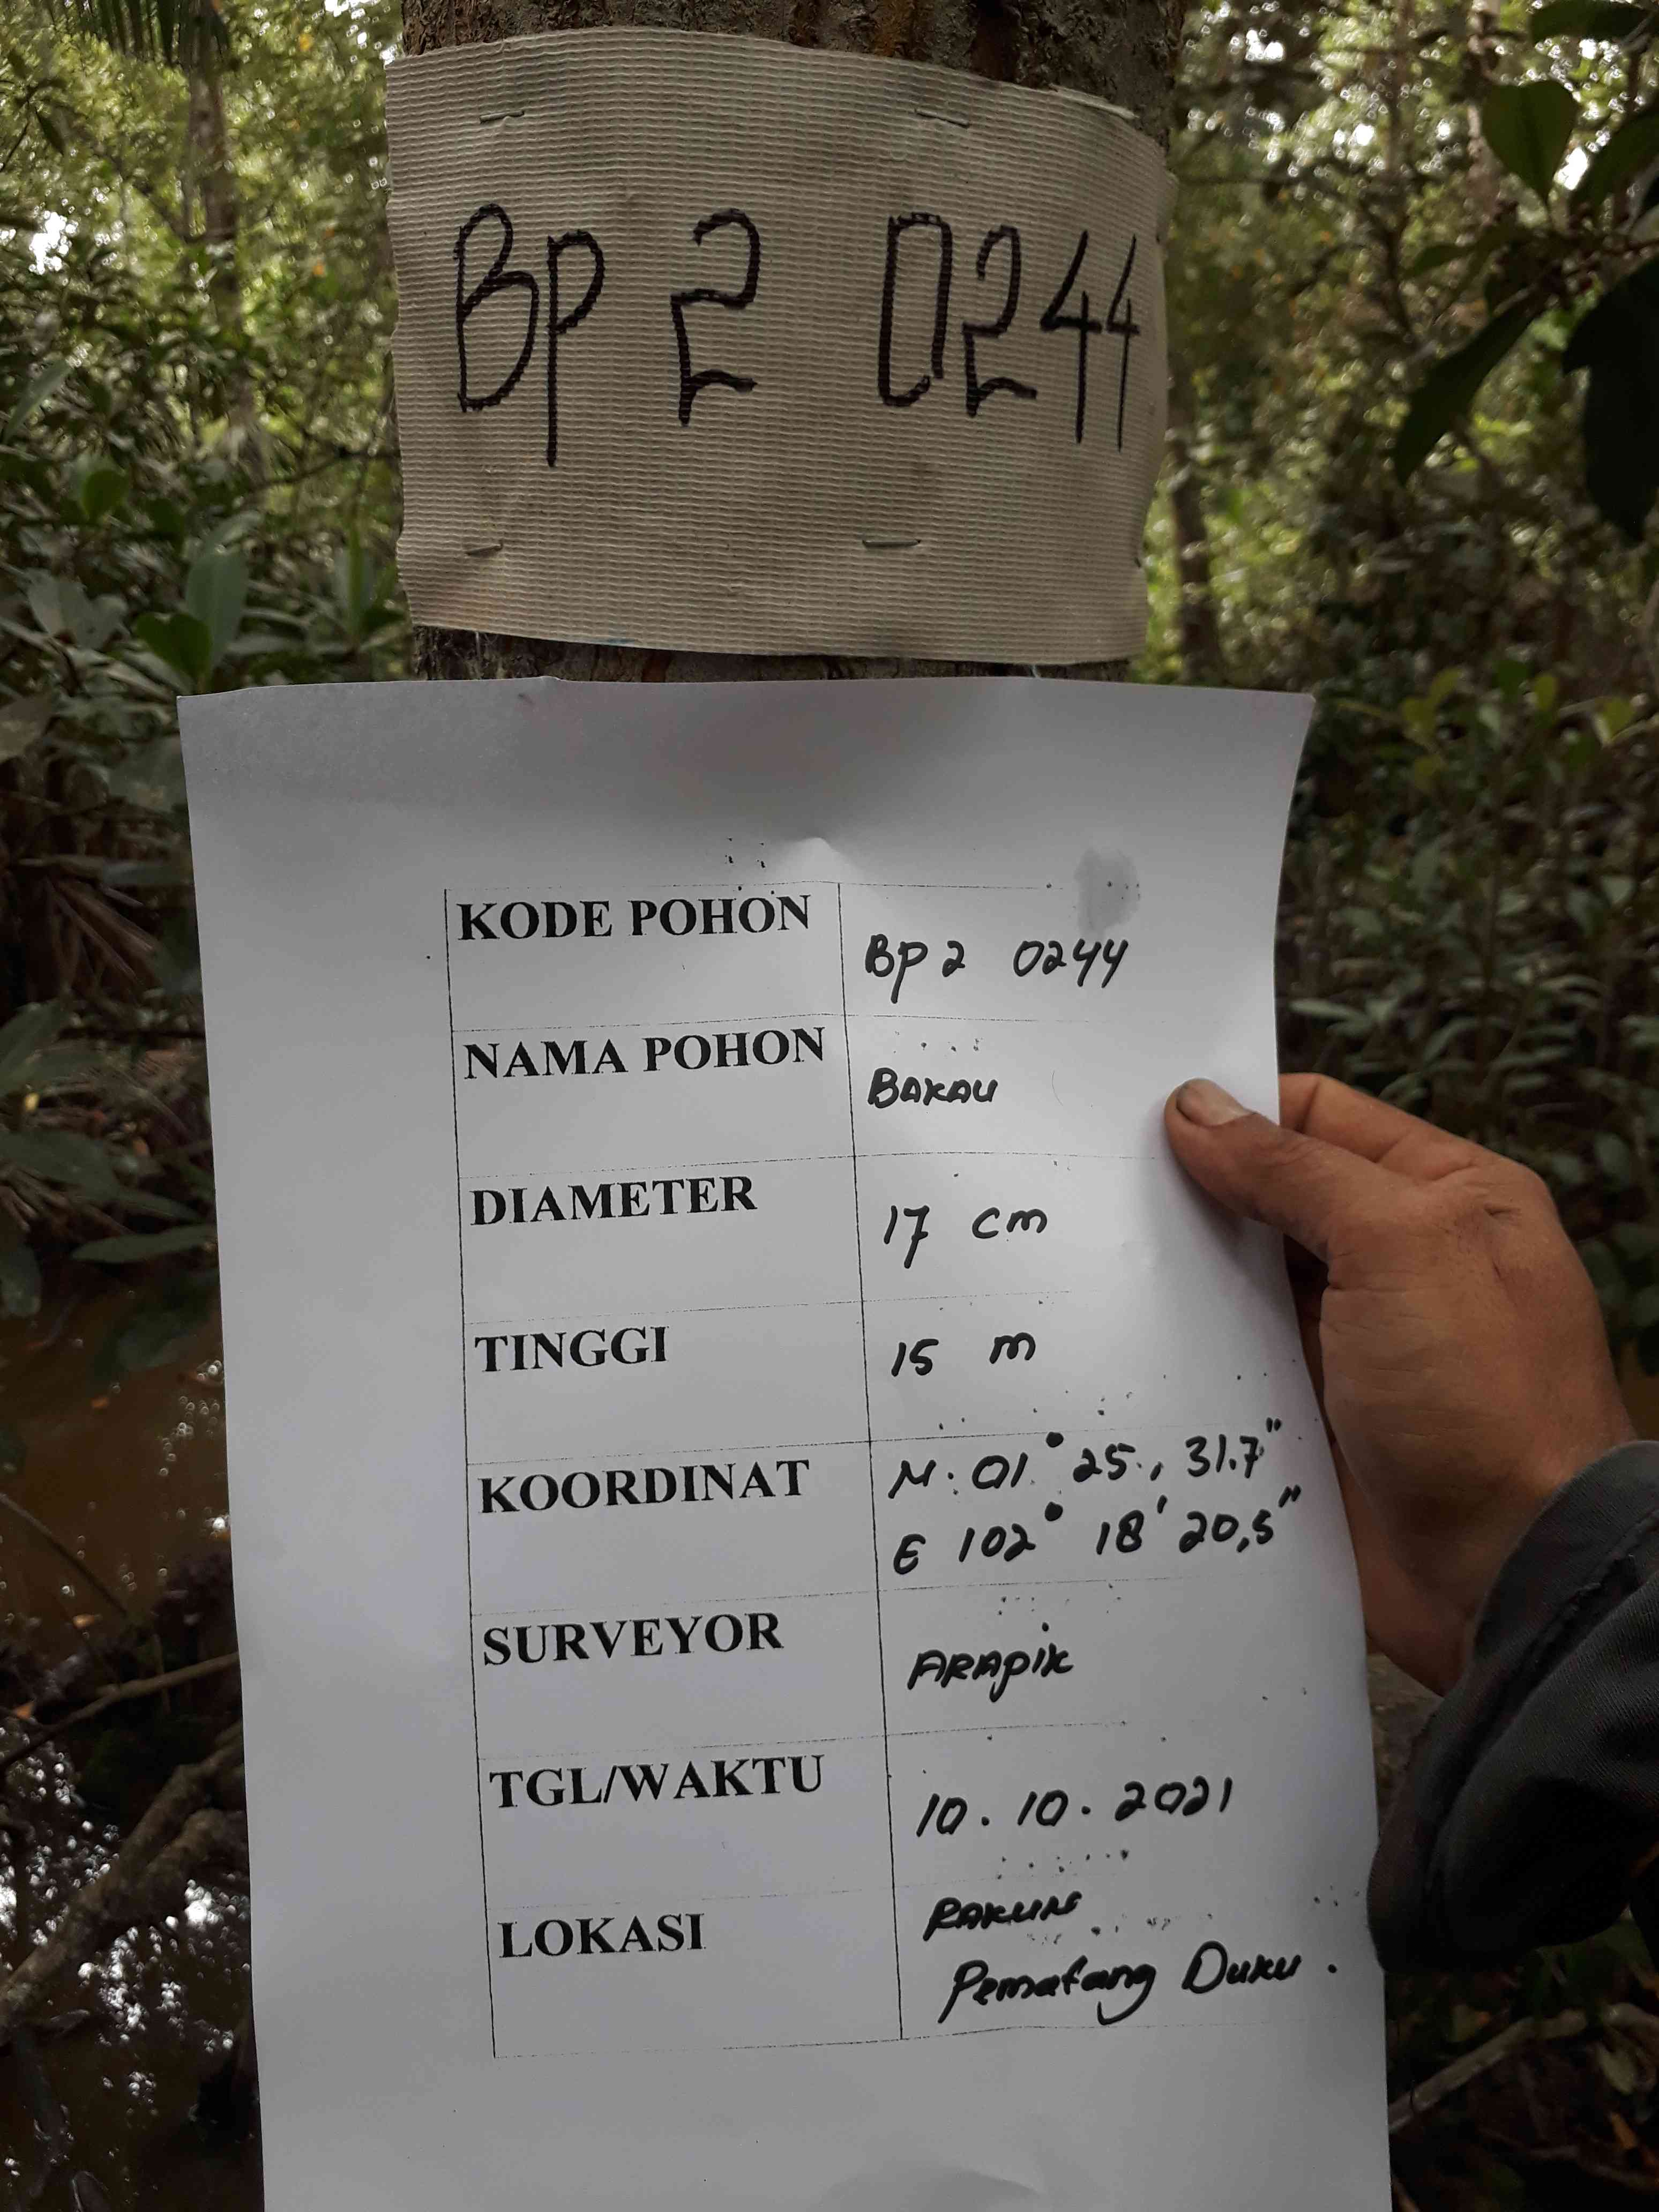 BP 2 0244
KODE POHON
BP 2 0244
NAMA POHON
BAKAU
DIAMETER
17 cm
TINGGI
15 m
KOORDINAT
N: 01° 25., 31.7"
E 102° 18' 20,5"
SURVEYOR
ARAPIK
TGL/WAKTU
10.10.2021
LOKASI
RAKUN
Pematang Duku.